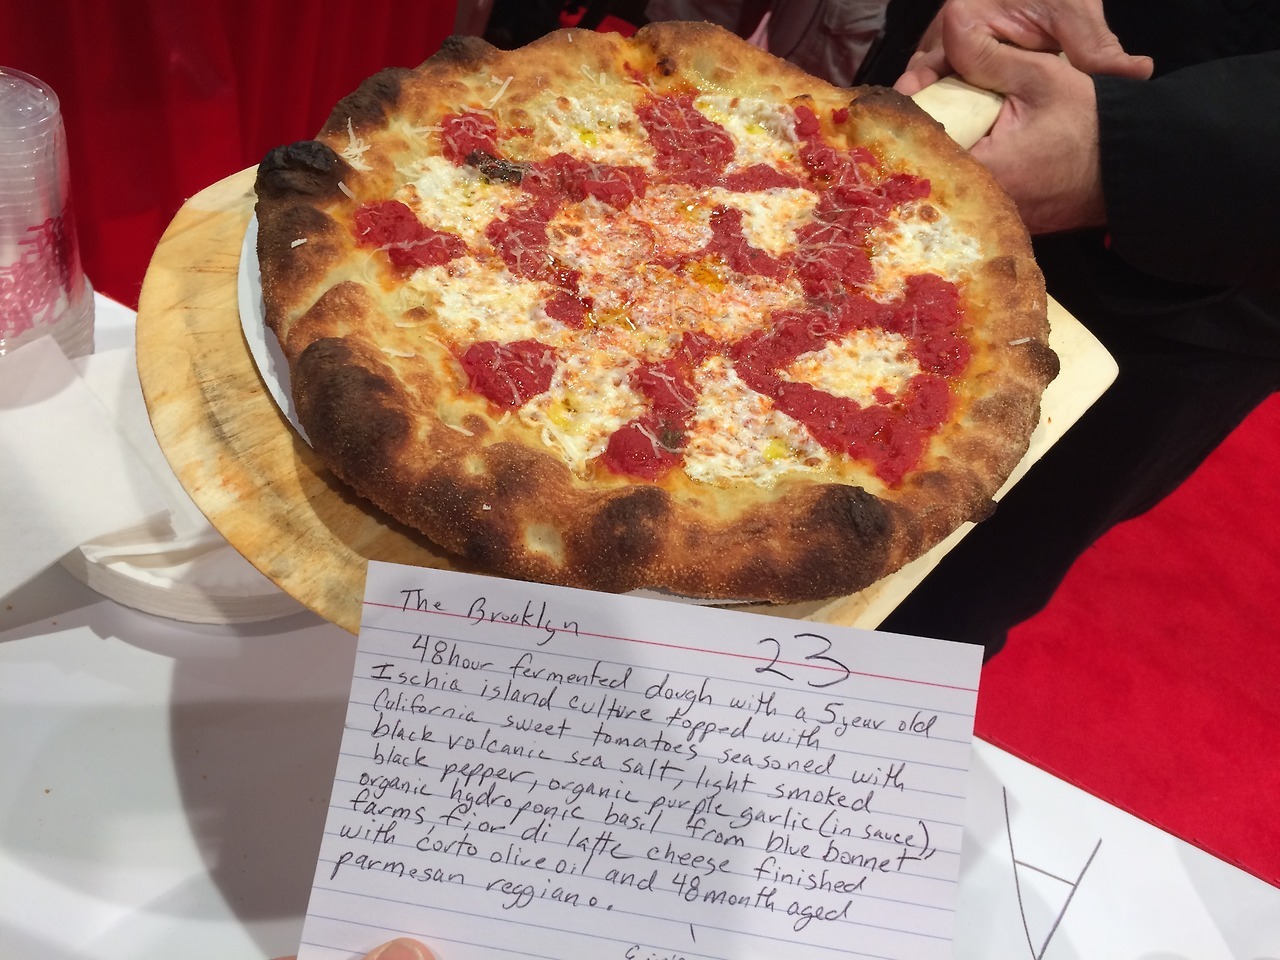 The Brooklyn
23
48hour fermented dough with a 5year old
Ischia island culture topped with
California sweet tomatoes seasoned with
black volcanic sea salt, light smoked
black pepper, organic purple garlic (in sauce),
organic hydroponic basil from blue bonnet
farms, fior di latte cheese finished
with corto olive oil and 48month aged
parmesan reggiano.
A